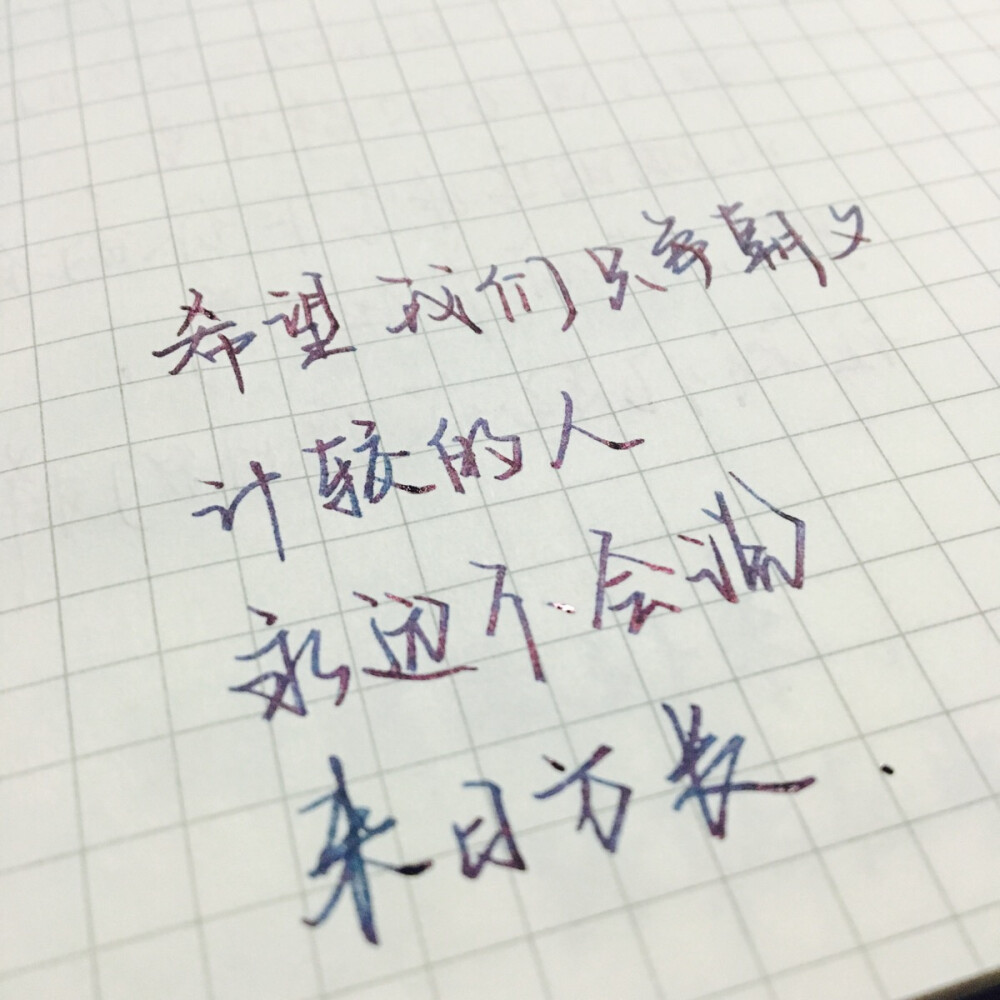 希望我们只争朝夕
计较的人
永远不会懂
来日方长